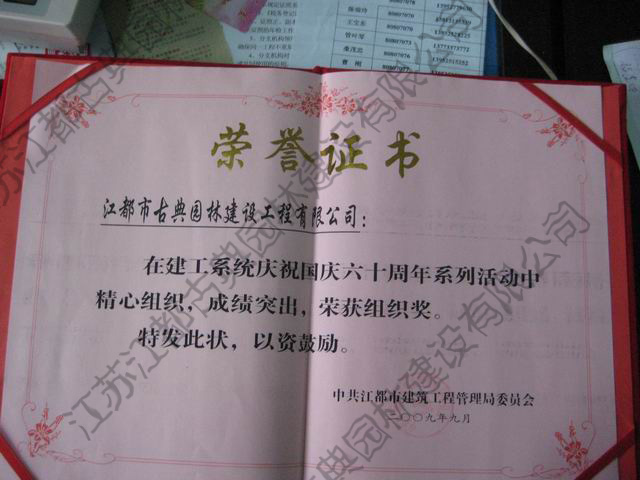 荣誉证书
江都市古典园林建设工程有限公司：
在建工系统庆祝国庆六十周年系列活动中
精心组织，成绩突出，荣获组织奖。
特发此状，以资鼓励。
中共江都市建筑工程管理局委员会
二〇〇九年九月
江苏江都古典园林建设有限公司
江苏江都古典园林建设有限公司